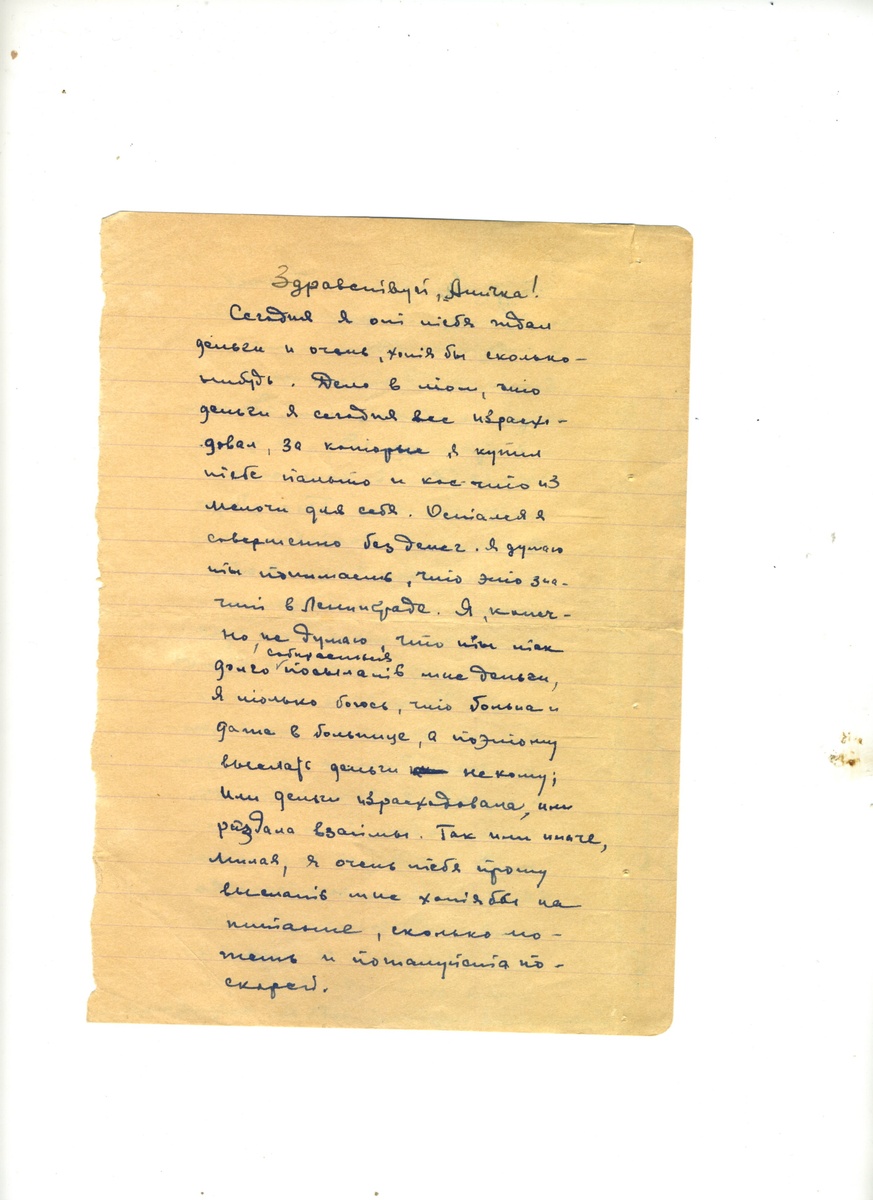 Здравствуй, Анечка!
Сегодня я от тебя ждал
деньги и очень, хотя бы сколько-
нибудь. Дело в том, что
деньги я сегодня все израсхо-
довал, за которые я купил
тебе пальто и кое-что из
мелочи для себя. Остался я
совершенно без денег. Я думаю
ты понимаешь, что это зна-
чит в Ленинграде. Я, конеч-
но, не думаю, что ты так
собираешься
долго посылать мне деньги,
я только боюсь, что больна и
даже в больнице, а поэтому
выслать деньги некому;
Или деньги израсходовала, или
раздала взаймы. Так или иначе,
милая, я очень тебя прошу
выслать мне хотя бы на
питание, сколько мо-
жешь и пожалуйста по-
скорей.